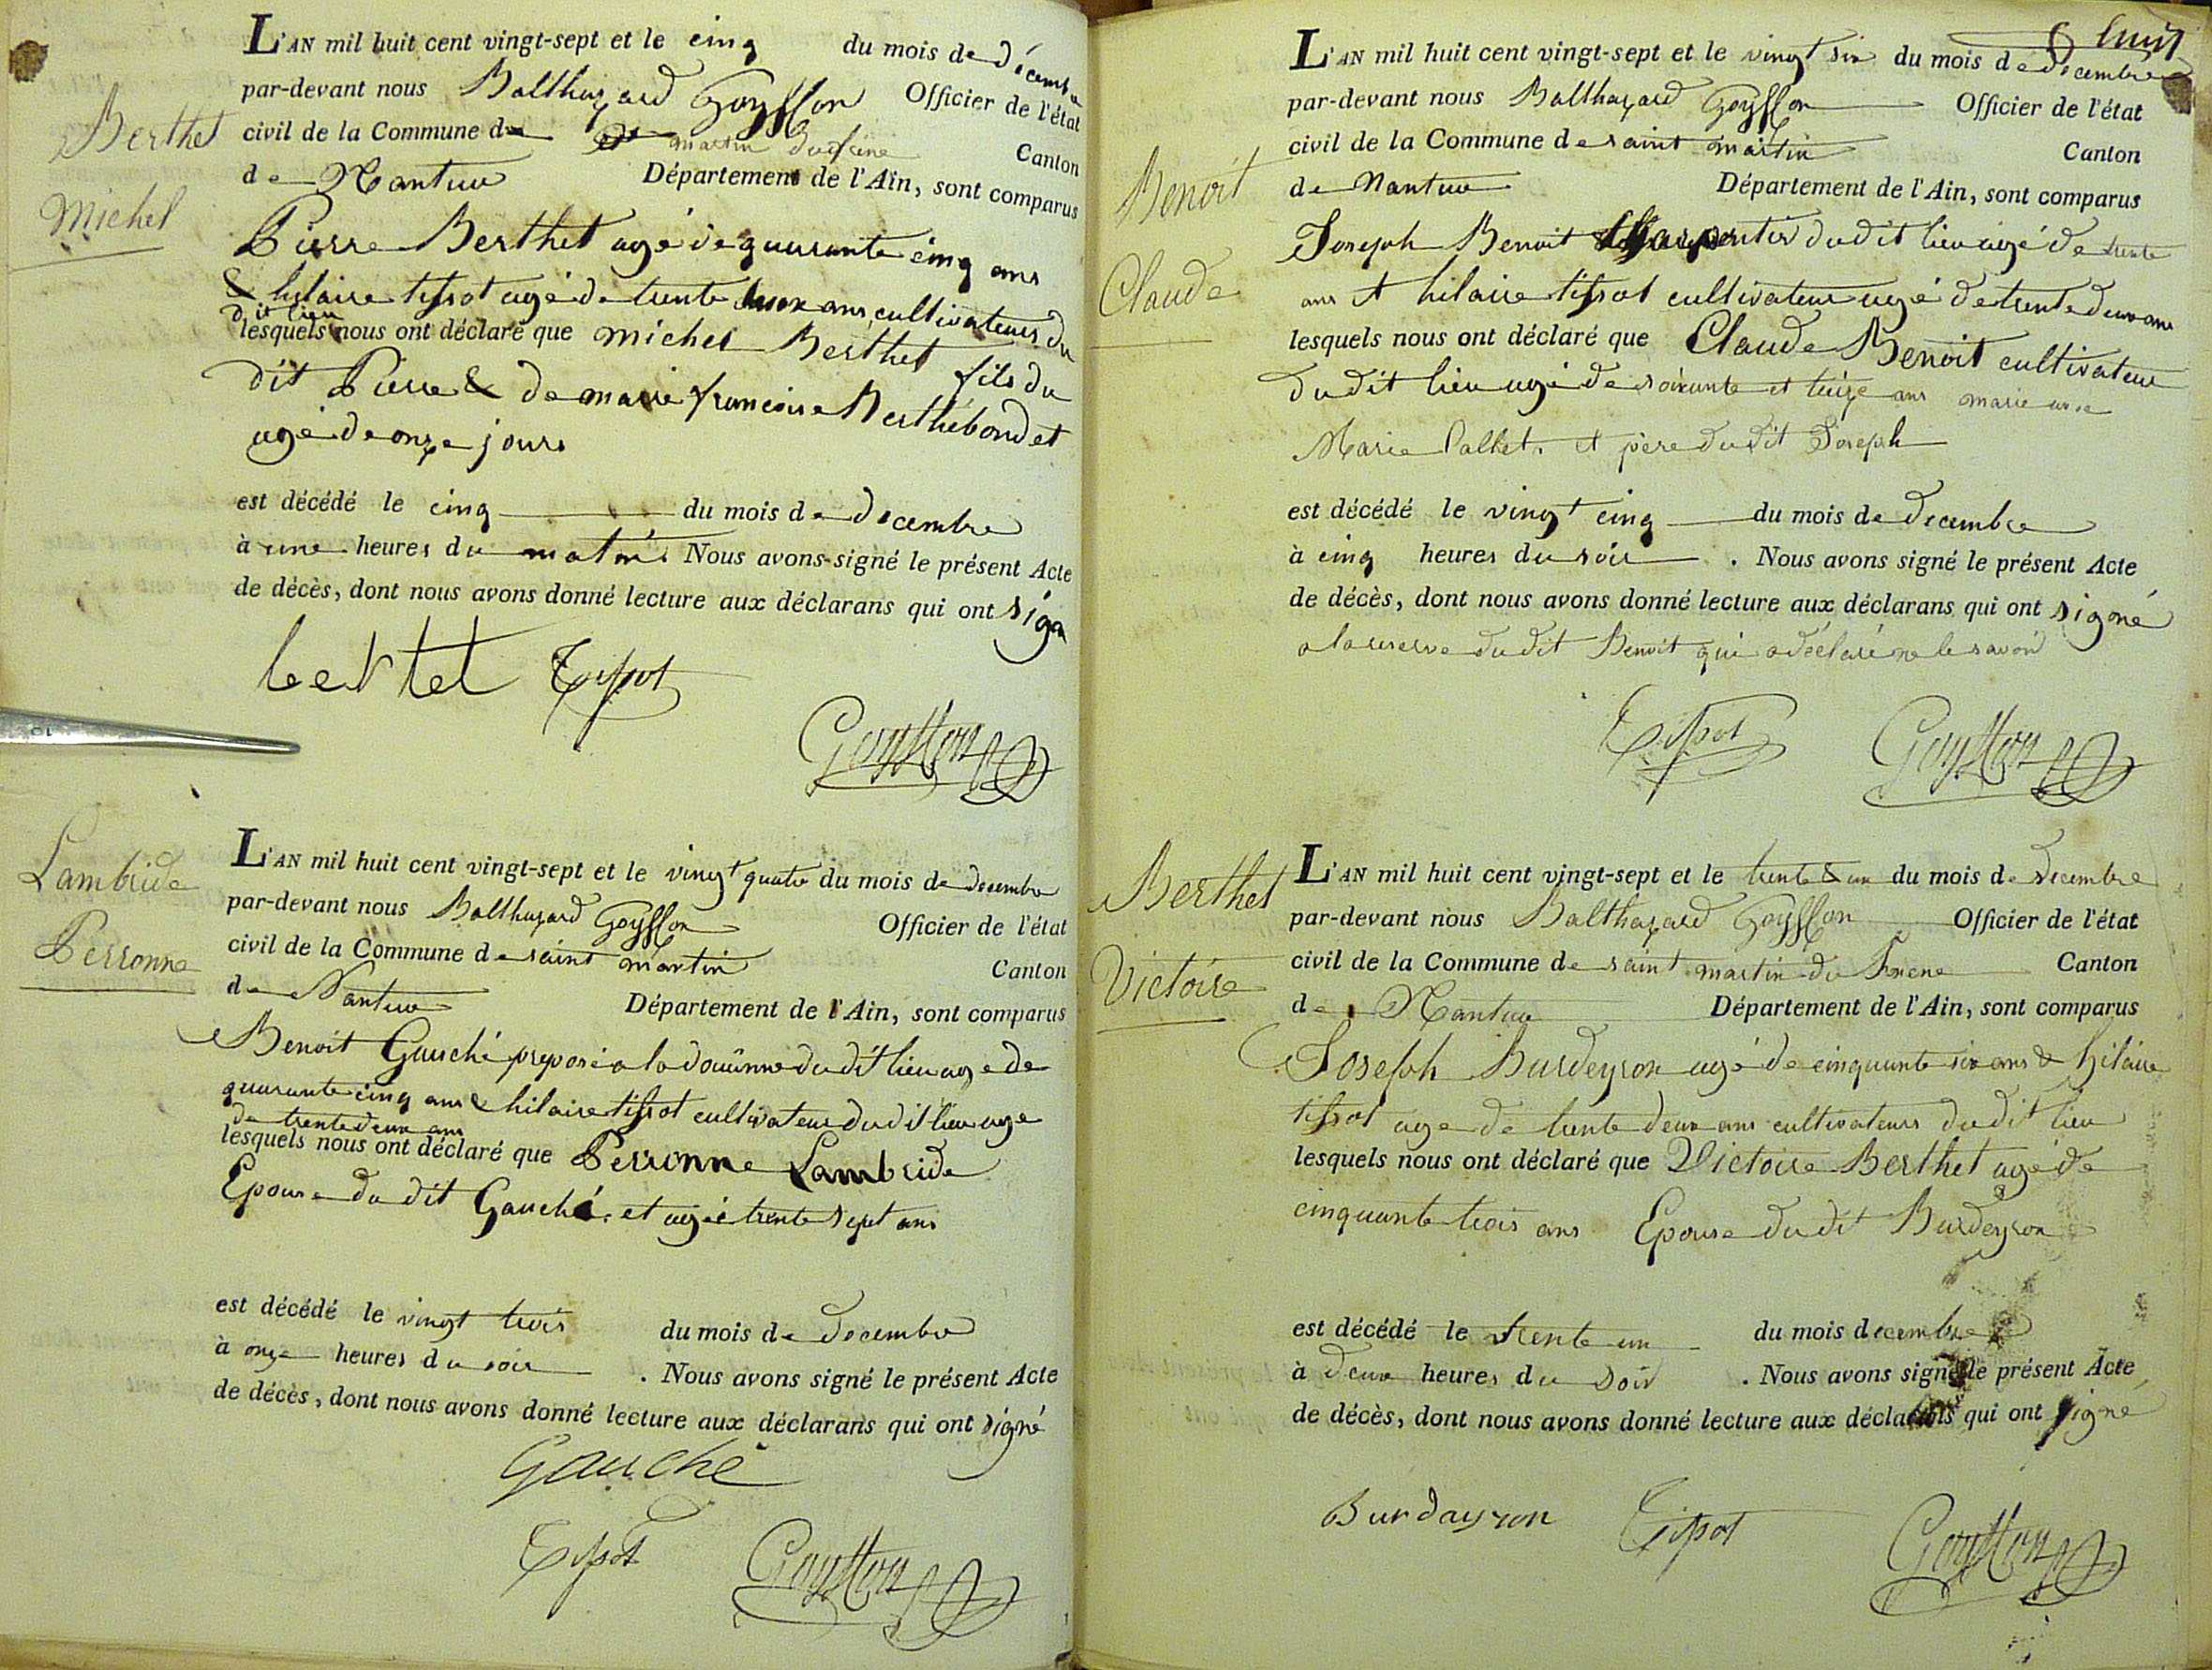 Berthet
Michel
L'AN mil huit cent vingt-sept et le cinq du mois de décembre
par-devant nous Balthazard Goyffon Officier de l'état
civil de la Commune de St martin du frêne Canton
de Nantua Département de l'Ain, sont comparus
Pierre Berthet agé de quarante cinq ans
& hilaire tissot agé de trente deux ans, cultivateurs du
dit lieu
lesquels nous ont déclaré que michel Berthet fils du
dit Pierre & de marie françoise Berthet bondet
agé de onze jours
est décédé le cinq du mois de décembre
à une heures du matin. Nous avons signé le présent Acte
de décès, dont nous avons donné lecture aux déclarans qui ont signé
bertet Tissot
Goyffon
Lambride
Perronne
L'AN mil huit cent vingt-sept et le vingt quatre du mois de decembre
par-devant nous Balthazard Goyffon Officier de l'état
civil de la Commune de saint martin Canton
de Nantua Département de l'Ain, sont comparus
Benoit Gauché preposé a la douänne du dit lieu age de
quarante cinq ans & hilaire tissot cultivateur du dit lieu age
de trente deux ans
lesquels nous ont déclaré que Perronne Lambride
Epouse du dit Gauché. et agée trente sept ans
est décédé le vingt trois du mois de decembre
à onze heures du soir . Nous avons signé le présent Acte
de décès, dont nous avons donné lecture aux déclarans qui ont signé
Gauche
Tissot Goyffon
huit
Benoit
Claude
L'AN mil huit cent vingt-sept et le vingt six du mois de décembre
par-devant nous Balthazard Goyffon Officier de l'état
civil de la Commune de saint martin Canton
de Nantua Département de l'Ain, sont comparus
Joseph Benoit Charpentier du dit lieu agé de trente
ans et hilaire tissot cultivateur agé de trente deux ans
lesquels nous ont déclaré que Claude Benoit cultivateur
du dit lieu agé de soixante et treize ans marie
Marie Pallet. et père du dit Joseph
est décédé le vingt cinq du mois de decembre
à cinq heures du soir . Nous avons signé le présent Acte
de décès, dont nous avons donné lecture aux déclarans qui ont signé
a la reserve du dit Benoit qui a déclaré ne le savoir
Tissot Goyffon
Berthet
Victoire
L'AN mil huit cent vingt-sept et le trente & un du mois de decembre
par-devant nous Balthazard Goyffon Officier de l'état
civil de la Commune de saint martin du Frene Canton
de Nantua Département de l'Ain, sont comparus
Joseph Burdeyron agé de cinquante six ans & hilaire
tissot age de trente deux ans cultivateurs du dit lieu
lesquels nous ont déclaré que Victoire Berthet agé de
cinquante trois ans Epouse du dit Burdeyron
est décédé le trente un du mois decembre
à deux heures du soir . Nous avons signé le présent Acte
de décès, dont nous avons donné lecture aux déclarans qui ont signé
Burdayron Tissot Goyffon